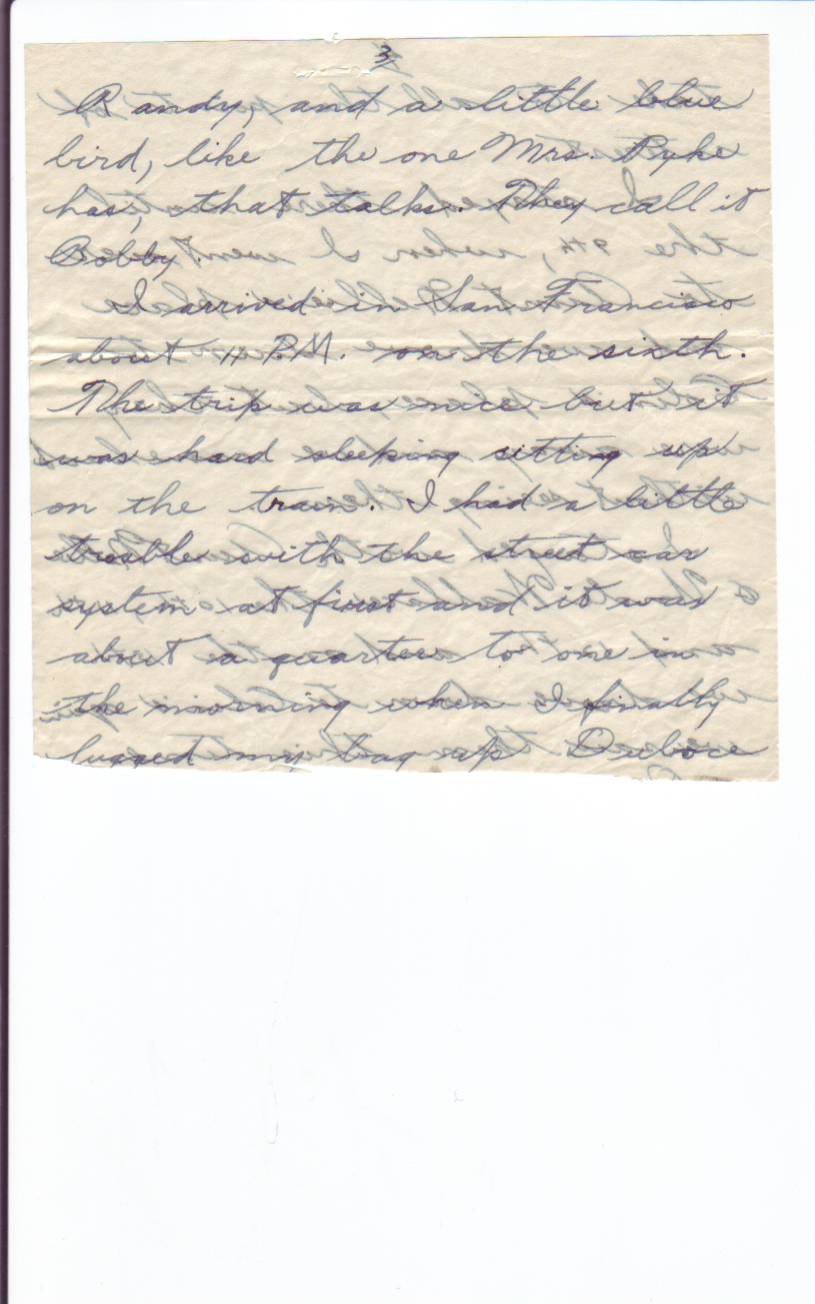 3
Randy, and a little blue
bird, like the one Mrs. Pyke
has, that talks. They call it
Bobby.
I arrived in San Francisco
about 11 P.M. on the sixth.
The trip was nice but it
was hard sleeping sitting up
on the train. I had a little
trouble with the street car
system at first and it was
about a quarter to one in
the morning when I finally
lugged my bag up Duboce